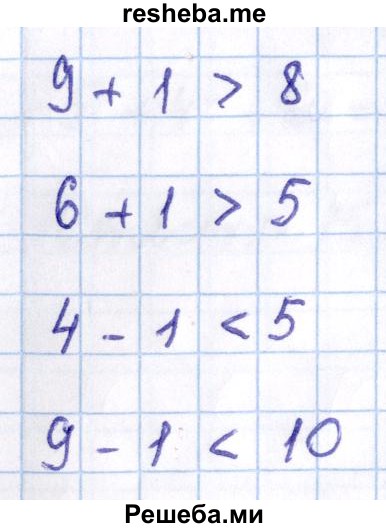 resheba.me
9 + 1 > 8
6 + 1 > 5
4 - 1 < 5
9 - 1 < 10
Решеба.ми